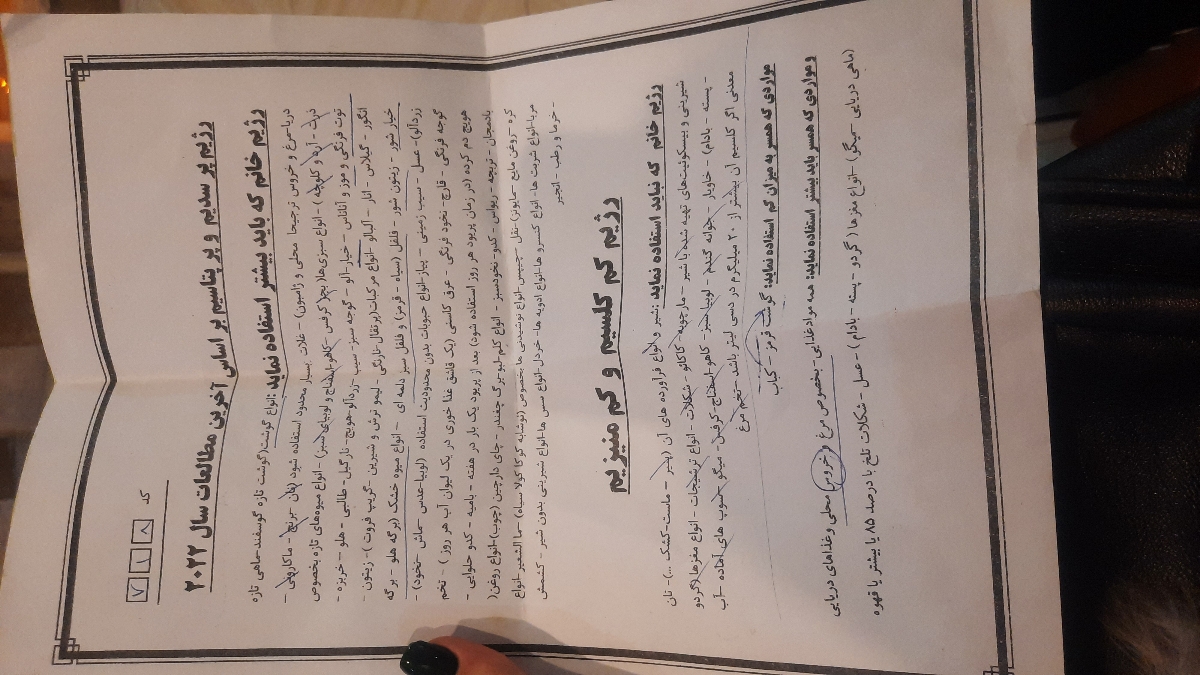 کد ۷ ۱ ۱ ۸
رژیم پر سدیم و پر پتاسیم بر اساس آخرین مطالعات سال ۲۰۲۲
رژیم خانم که باید بیشتر استفاده نماید: انواع گوشت(گوشت تازه گوسفند-ماهی تازه
دریا-مرغ و خروس ترجیحا محلی و ژامبون) - غلات بسیار محدود استفاده شود (نان - برنج - ماکارونی -
ذرت - آرد و کلوچه) - انواع سبزی‌ها(بجز کرفس-کاهو-اسفناج و لوبیای سبز) - انواع میوه‌های تازه بخصوص
توت فرنگی و موز و آناناس - خیار-آلو - گوجه سبز-سیب - زردآلو-هویج - نارگیل - طالبی - هلو - خربزه -
انگور - گیلاس - انار - آلبالو -انواع مرکبات(پرتقال-نارنگی - لیمو ترش و شیرین -گریپ فروت ) - زیتون -
خیار شور - زیتون شور - فلفل (سیاه - قرمز) و فلفل سبز دلمه ای - انواع میوه خشک (برگه هلو - برگه
زردآلو)- عسل - سیب زمینی - پیاز-انواع حبوبات بدون محدودیت استفاده (لوبیا-عدس -ماش -نخود) -
گوجه فرنگی - قارچ- نخود فرنگی - عرق کاسنی (یک قاشق غذا خوری در یک لیوان آب هر روز ) - تخم
هویج دم کرده (در زمان پریود هر روز استفاده شود) بعد از پریود یک بار در هفته - بامیه - کدو حلوایی -
بادمجان - تربچه - ریواس - کدو- نخودسبز - انواع کلم-لبو-برگ چغندر - چای دارچین (چوب)-انواع روغن(
کره - روغن مایع -مایونز)-نقل -چیپس-انواع نوشیدنی ها بخصوص (نوشابه کوکا کولا سیاه) -ما الشعیر-انواع
مربا-انواع شربت ها-انواع کنسرو ها-انواع ادویه ها-خردل-انواع سس ها-انواع شیرینی بدون شیر - کشمش
- خرما و رطب - انجیر
رژیم کم کلسیم و کم منیزیم
رژیم خانم که نباید استفاده نماید :شیر و انواع فرآورده های آن (پنیر - ماست-کشک ...)- نان
شیرینی و بیسکوئیت‌های تهیه شده با شیر - مارچوبه- کاکائو -شکلات - انواع ترشیجات - انواع مغزها (گردو
- پسته - بادام) - خاویار -جوانه گندم - لوبیا سبز- کاهو-اسفناج-کرفس- میگو -سوپ های آماده -آب
معدنی اگر کلسیم آن بیشتر از ۲۰ میلیگرم در دسی لیتر باشد -تخم مرغ
مواردی که همسر به میزان کم استفاده نماید: گوشت قرمز -کباب
و مواردی که همسر باید بیشتر استفاده نماید: همه موادغذایی بخصوص مرغ و خروس محلی وغذاهای دریایی
(ماهی دریایی -میگو) -انواع مغزها ( گردو - پسته - بادام ) - عسل - شکلات تلخ با درصد ۸۵ یا بیشتر یا قهوه